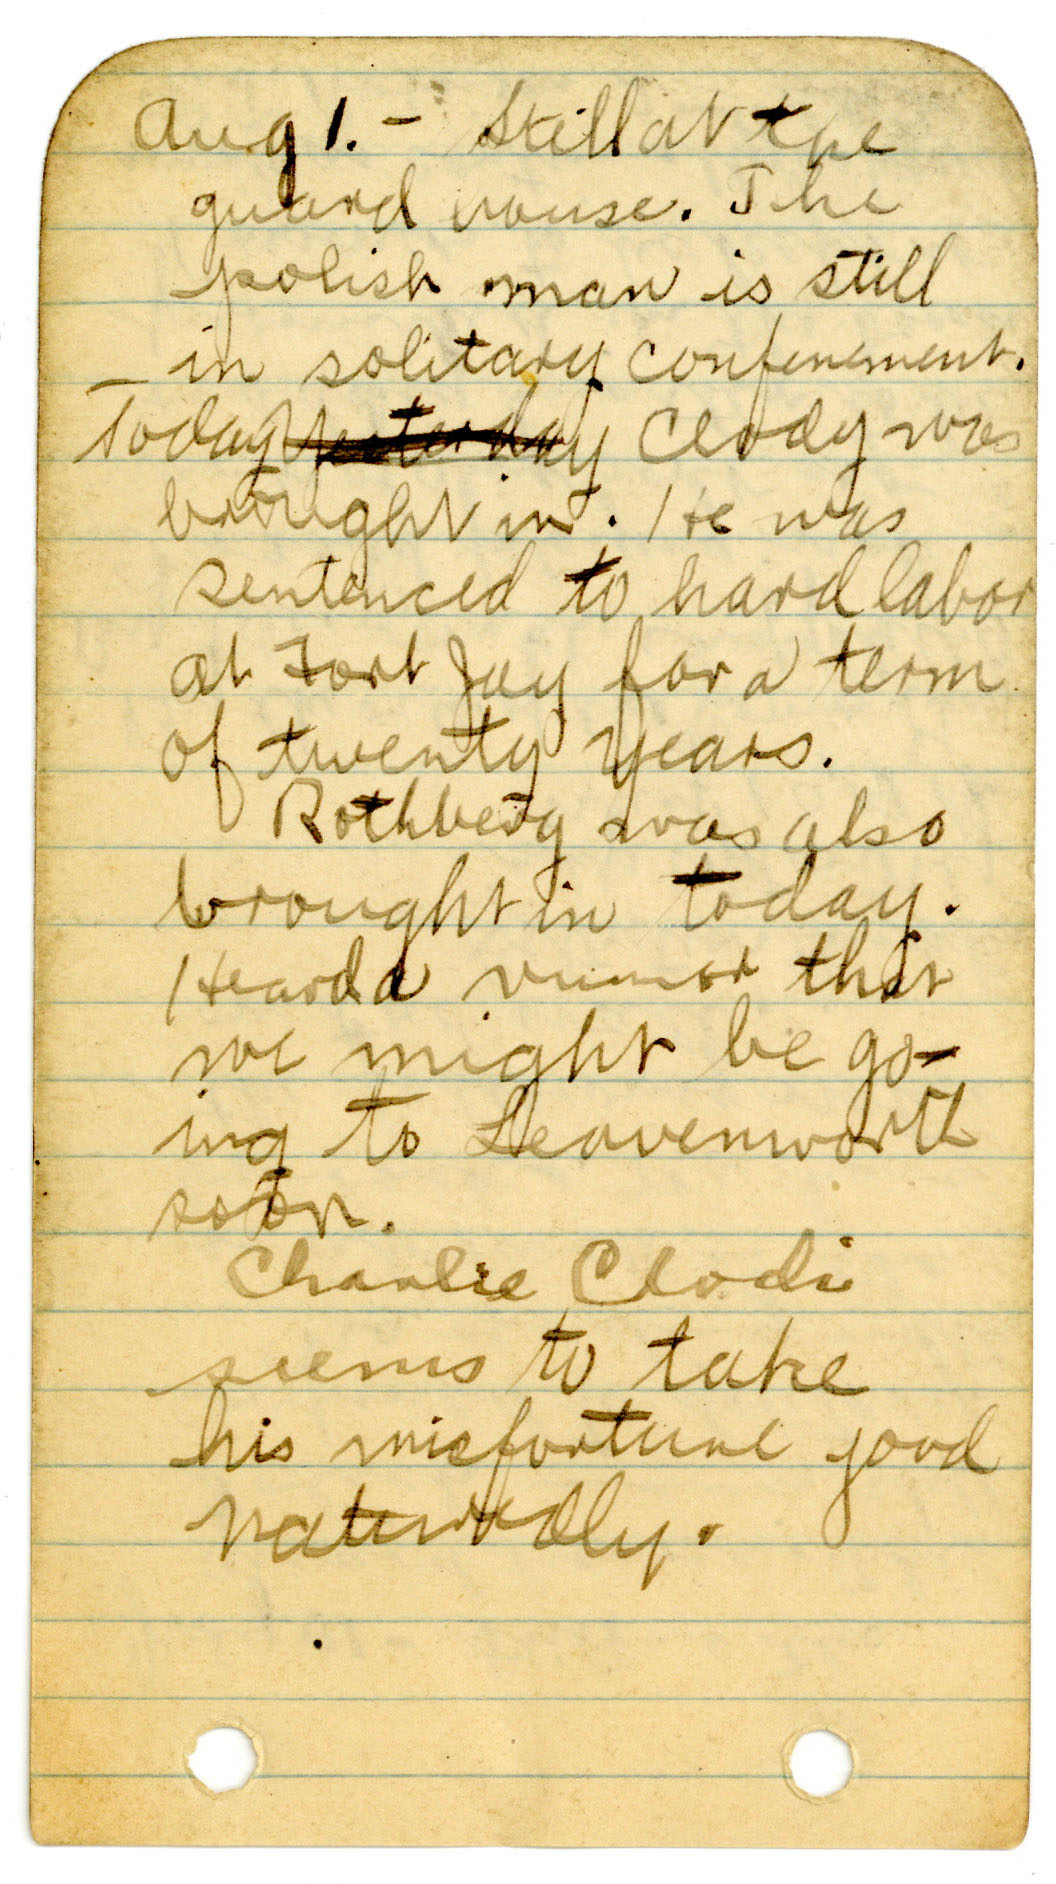 Aug 1. - Still at the
guard house. The
polish man is still
in solitary confinement.
- Today yesterday Clody was
brought in. He was
sentenced to hard labor
at Fort Jay for a term
of twenty years.
Rothberg was also
brought in today.
Heard a rumor that
we might be go-
ing to Leavenworth
soon.
Charlie Clodi
seems to take
his misfortune good
naturedly.